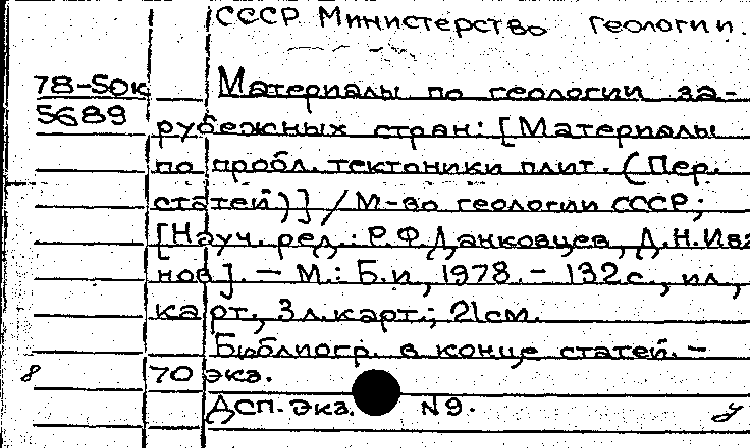 СССР Министерство геологии.
78-50к Материалы по геологии за-
5689 рубежных стран: [Материалы
по пробл. тектоники плит. (Пер.
статей)] / М-во геологии СССР;
[Науч. ред.: Р.Ф. Данковцев, Д.Н. Ива
нов]. – М.: Б.и, 1978. – 132с., ил,
карт., 3 л. карт.; 21см.
Библиогр. в конце статей. –
8 70 экз.
ДСП. Экз. N9.